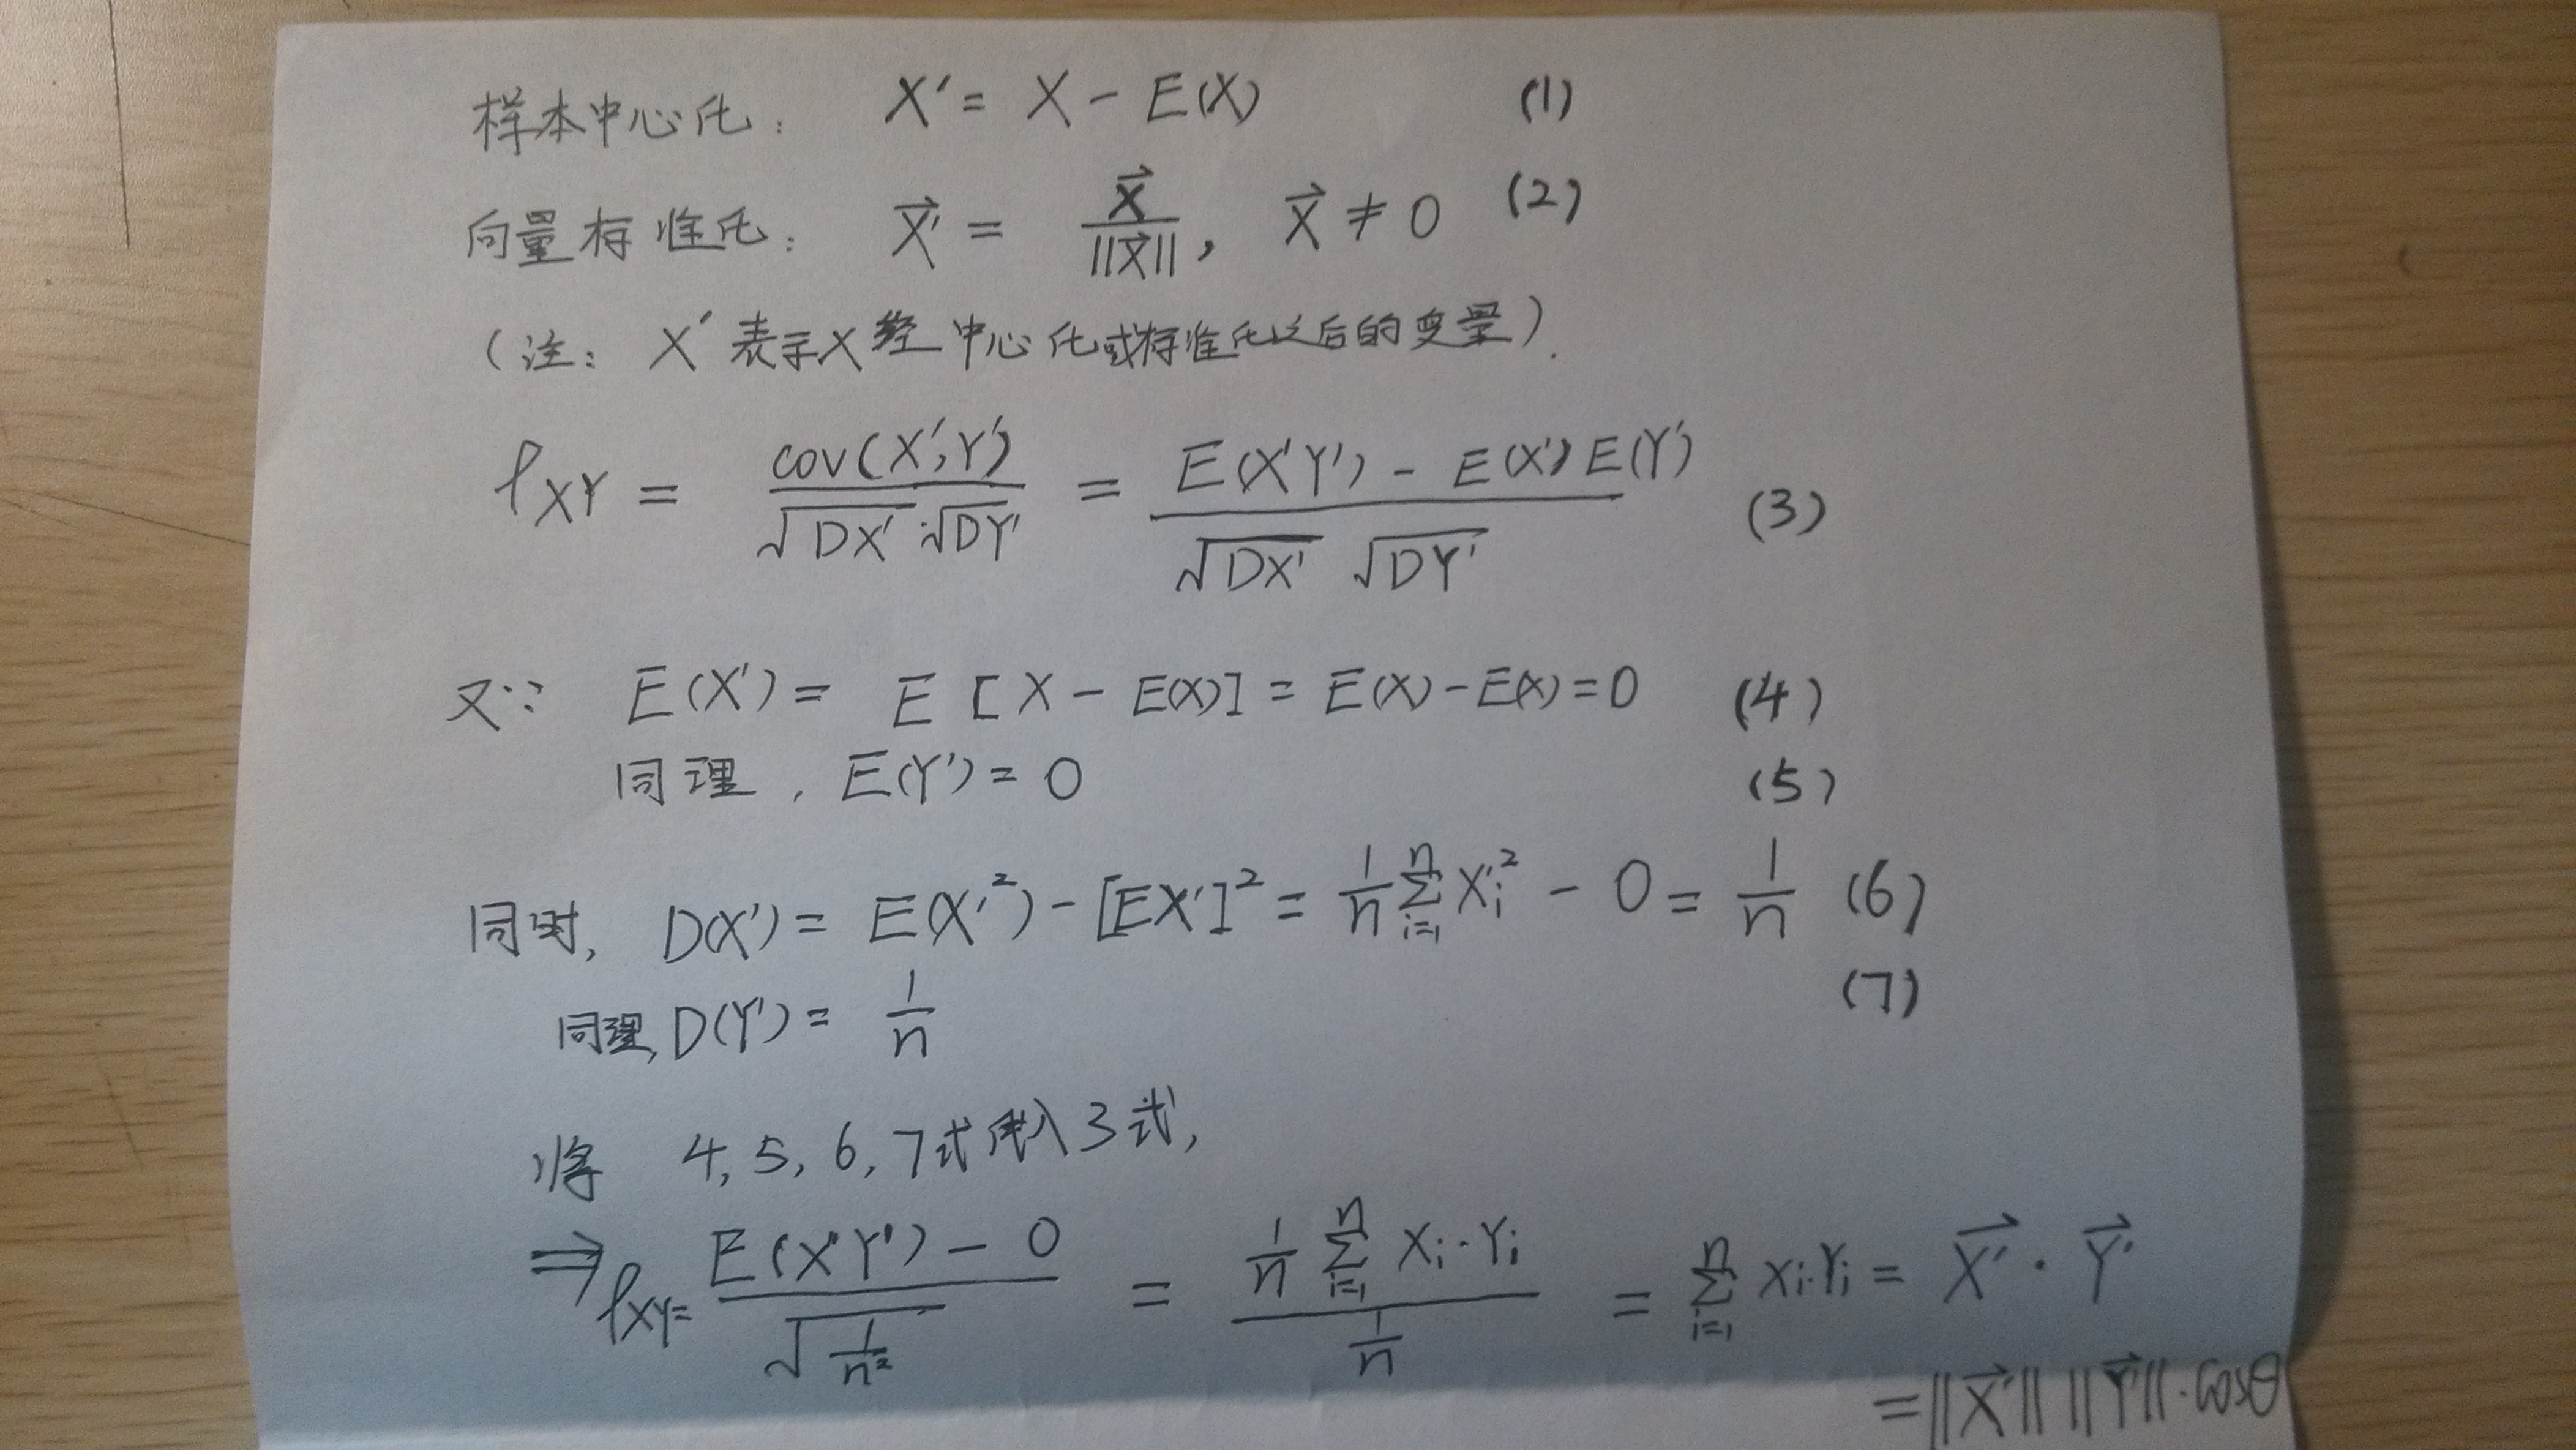 样本中心化: X' = X - E(X) (1)
向量标准化: X⃗' = X⃗ / ||X⃗||, X⃗ ≠ 0 (2)
(注: X' 表示X经中心化或标准化以后的变量).
ρXY = cov(X', Y') / √DX' · √DY' = E(X'Y') - E(X')E(Y') / √DX' √DY' (3)
又∵ E(X') = E[X - E(X)] = E(X) - E(X) = 0 (4)
同理, E(Y') = 0 (5)
同时, D(X') = E(X'²) - [EX']² = 1/n ∑ᵢ₌₁ⁿ X'ᵢ² - 0 = 1/n (6)
同理, D(Y') = 1/n (7)
将 4, 5, 6, 7式代入3式,
⇒ ρXY = E(X'Y') - 0 / √(1/n²) = (1/n ∑ᵢ₌₁ⁿ Xᵢ · Yᵢ) / (1/n) = ∑ᵢ₌₁ⁿ Xᵢ · Yᵢ = X⃗' · Y⃗'
= ||X⃗'|| ||Y⃗'|| · cosθ